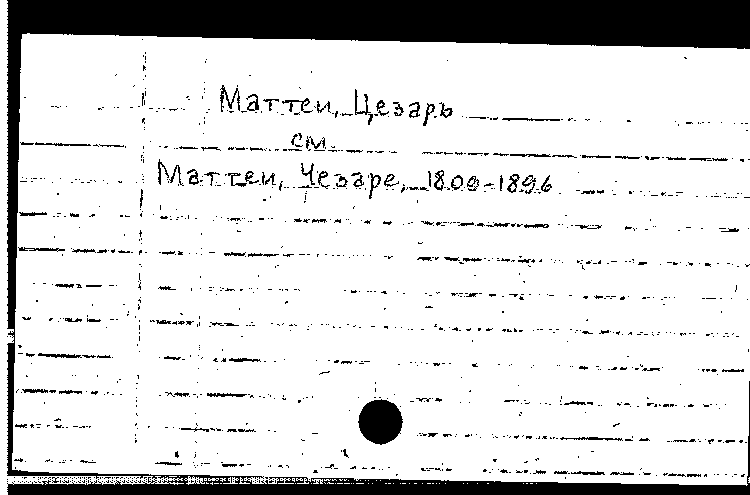 Маттеи, Цезарь
см.
Маттеи, Чезаре, 1809-1896